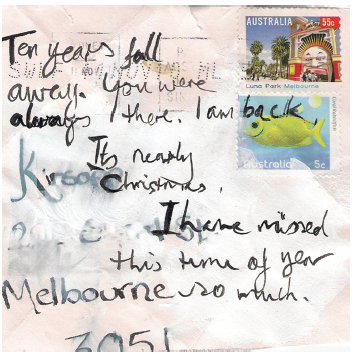 Ten years fall
away. You were
always there. I am back
Its nearly
Christmas.
I have missed
this time of year
Melbourne so much.
3051
AUSTRALIA 55c
Luna Park Melbourne
Australia 5c